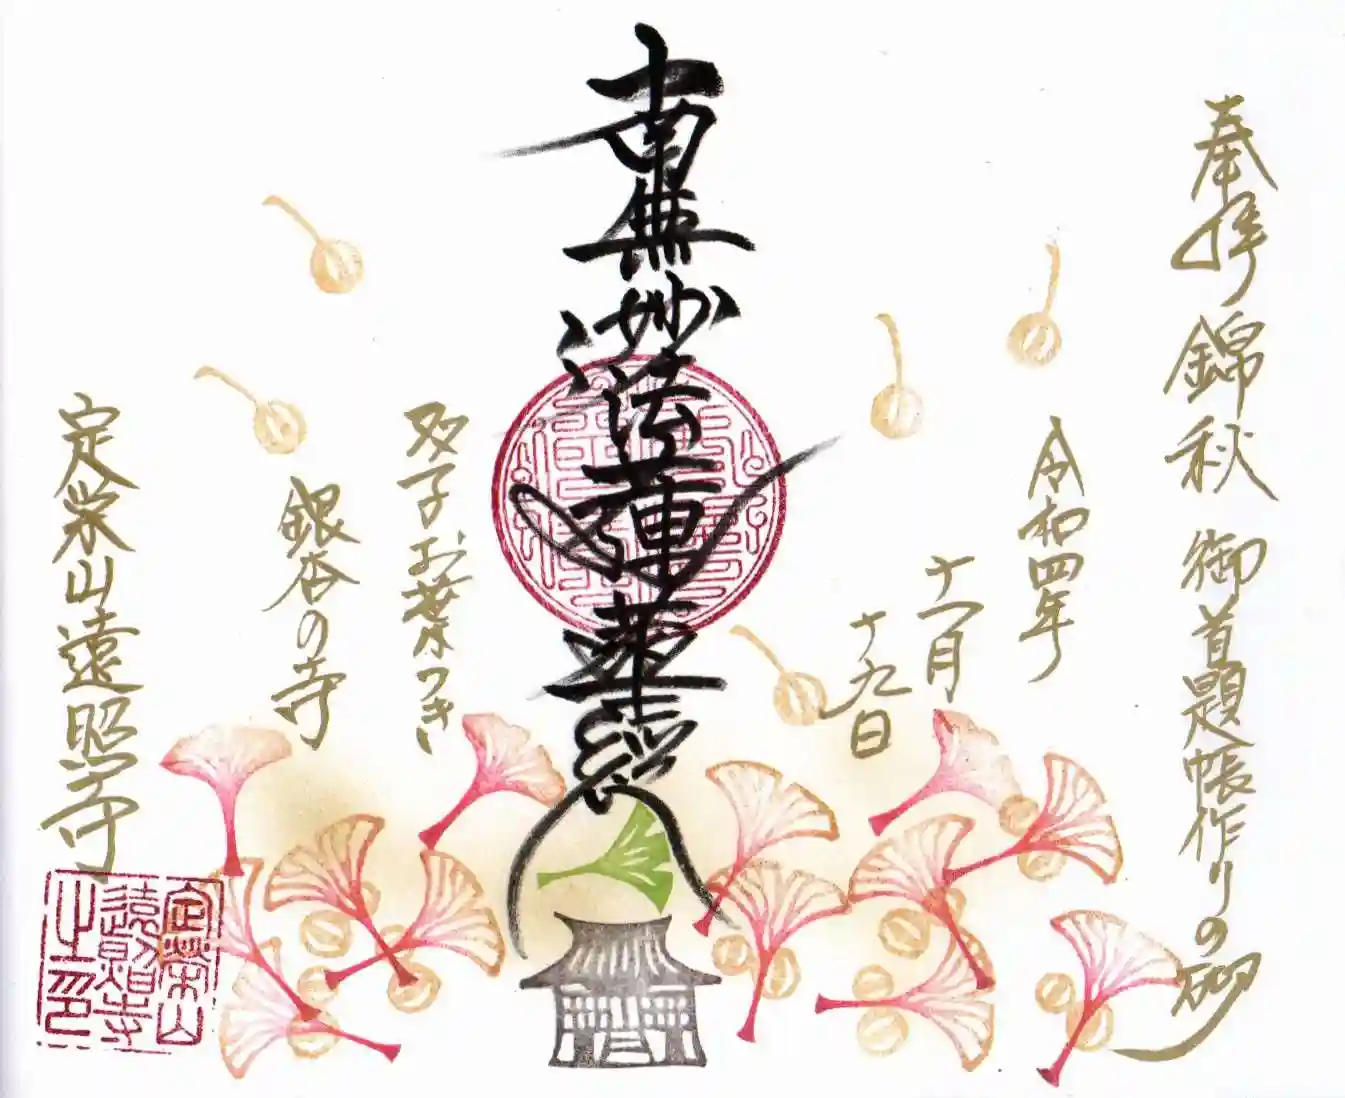 奉拝 錦秋 御首題帳作りの砌
令和四年
十一月
十九日
南無妙法蓮華経
双子お葉つき
銀杏の寺
定栄山遠照寺